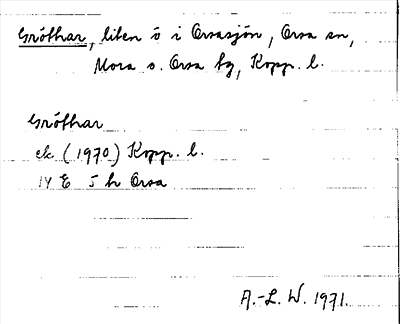 Gråthar, liten ö i Orsasjön, Orsa sn,
Mora o. Orsa tg, Kopp. l.
Gråthar
ek (1970) Kopp. l.
14 E 5 h Orsa
A.-L. W. 1971.